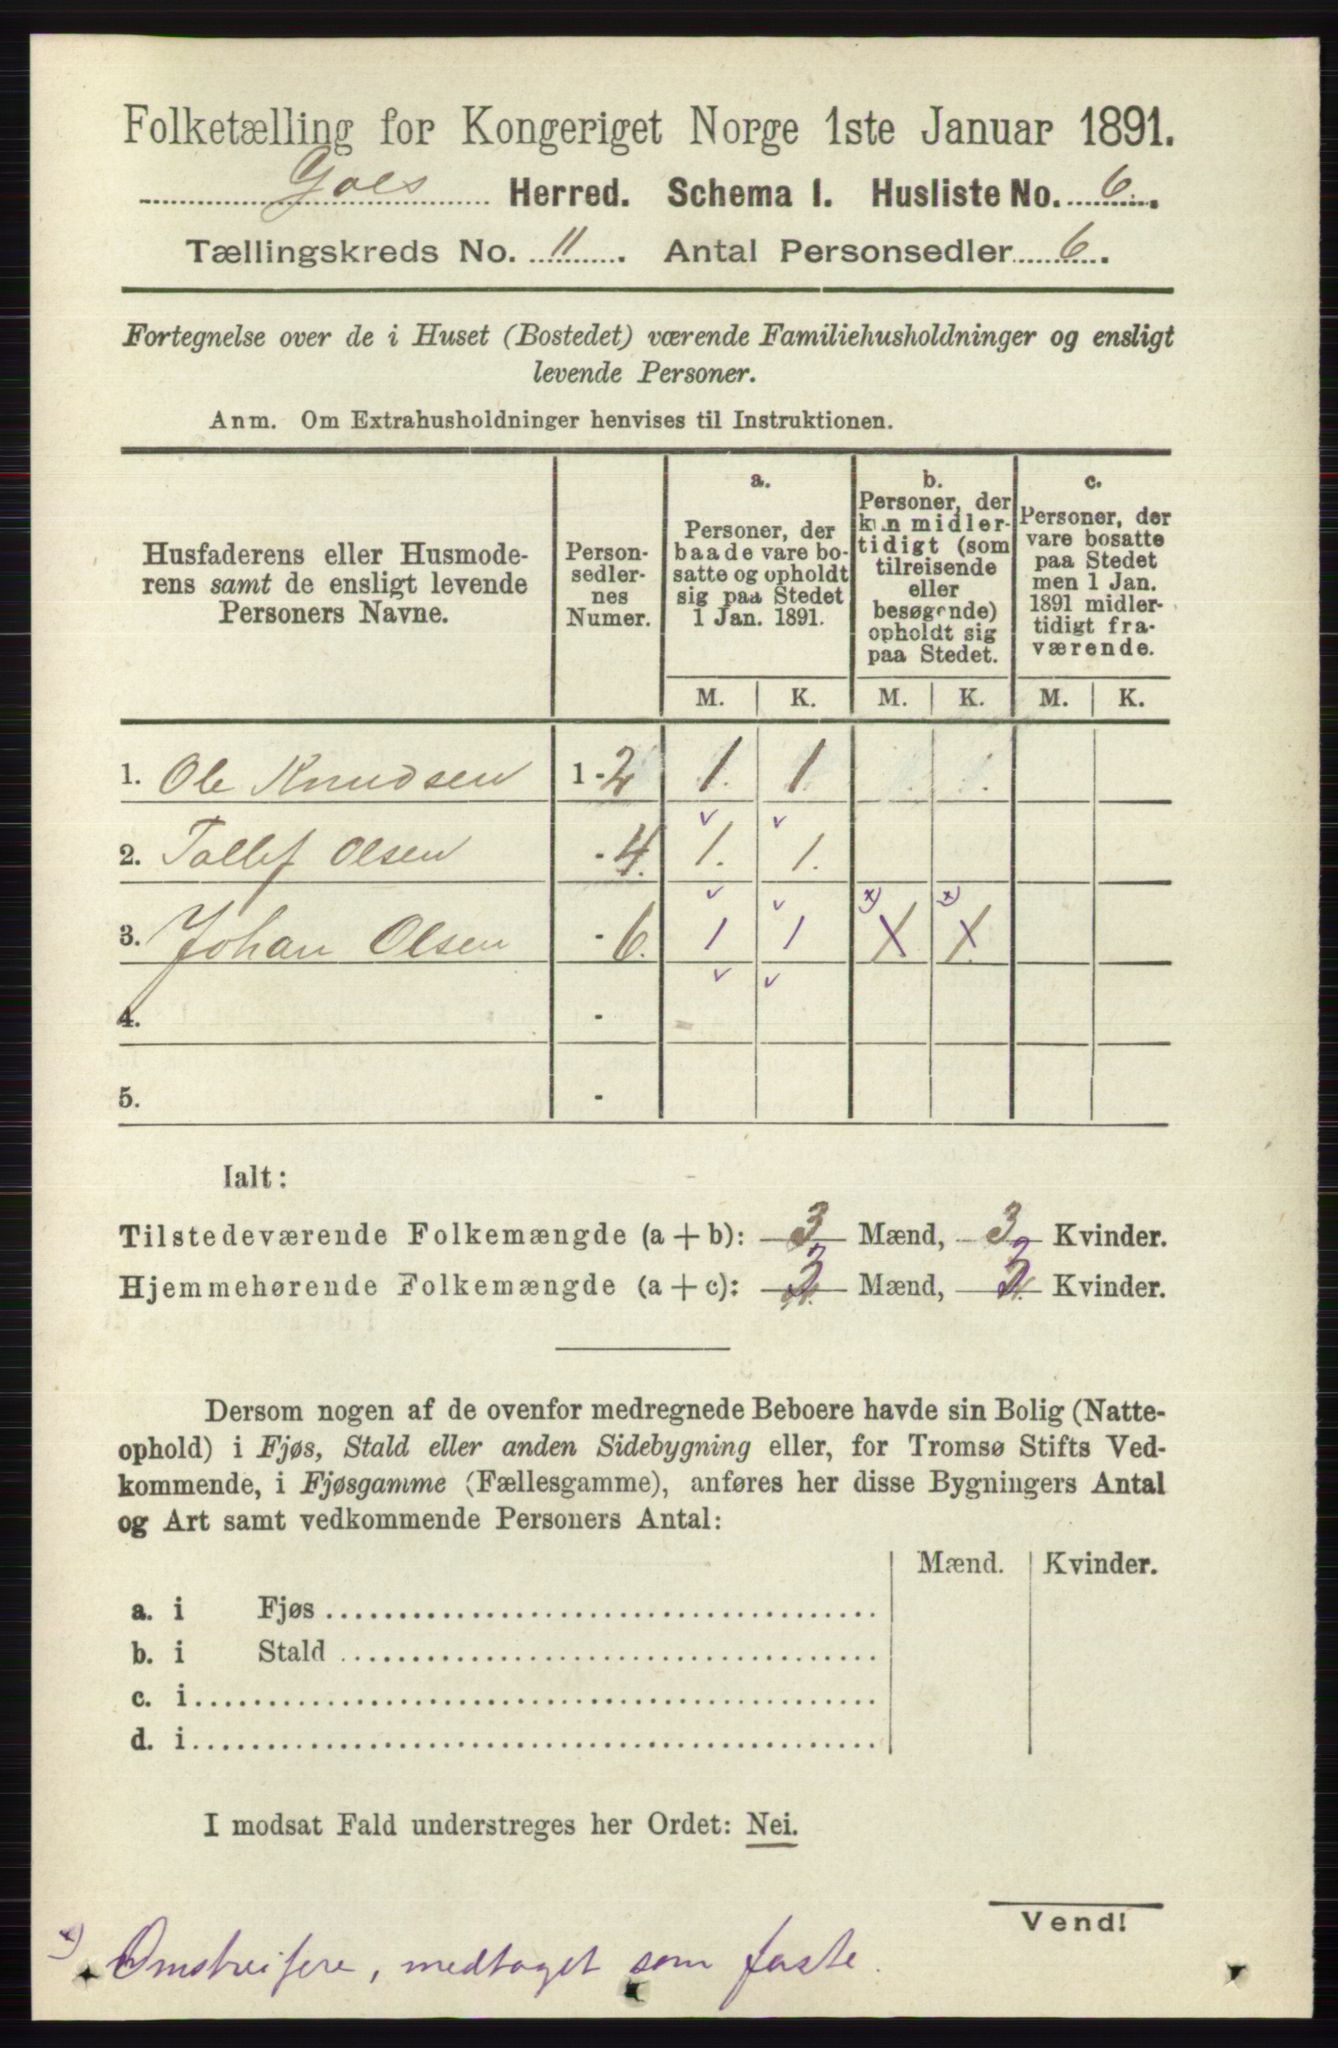 Folketælling for Kongeriget Norge 1ste Januar 1891.
Gols Herred. Schema I. Husliste No. 6.
Tællingskreds No. 11. Antal Personsedler 6.
Fortegnelse over de i Huset (Bostedet) værende Familiehusholdninger og ensligt
levende Personer.
Anm. Om Extrahusholdninger henvises til Instruktionen.
Husfaderens eller Husmode-
rens samt de ensligt levende
Personers Navne.
Person-
sedler-
nes
Numer.
a.
Personer, der
baade vare bo-
satte og opholdt
sig paa Stedet
1 Jan. 1891.
b.
Personer, der
kun midler-
tidigt (som
tilreisende
eller
besøgende)
opholdt sig
paa Stedet.
c.
Personer, der
vare bosatte
paa Stedet
men 1 Jan.
1891 midler-
tidigt fra-
værende.
M. K. M. K. M. K.
1. Ole Knudsen 1 - 2 1. 1
2. Tollef Olsen - 4. 1. 1.
3. Johan Olsen - 6. 1 1 x) X x) X
4. -
5. -
Ialt:
Tilstedeværende Folkemængde (a + b): 3 Mænd, 3 Kvinder.
Hjemmehørende Folkemængde (a + c): 3 Mænd, 3 Kvinder.
Dersom nogen af de ovenfor medregnede Beboere havde sin Bolig (Natte-
ophold) i Fjøs, Stald eller anden Sidebygning eller, for Tromsø Stifts Ved-
kommende, i Fjøsgamme (Fællesgamme), anføres her disse Bygningers Antal
og Art samt vedkommende Personers Antal:
Mænd. Kvinder.
a. i Fjøs
b. i Stald
c. i
d. i
I modsat Fald understreges her Ordet: Nei.
Vend!
x) Omstreifere, medtaget som faste.